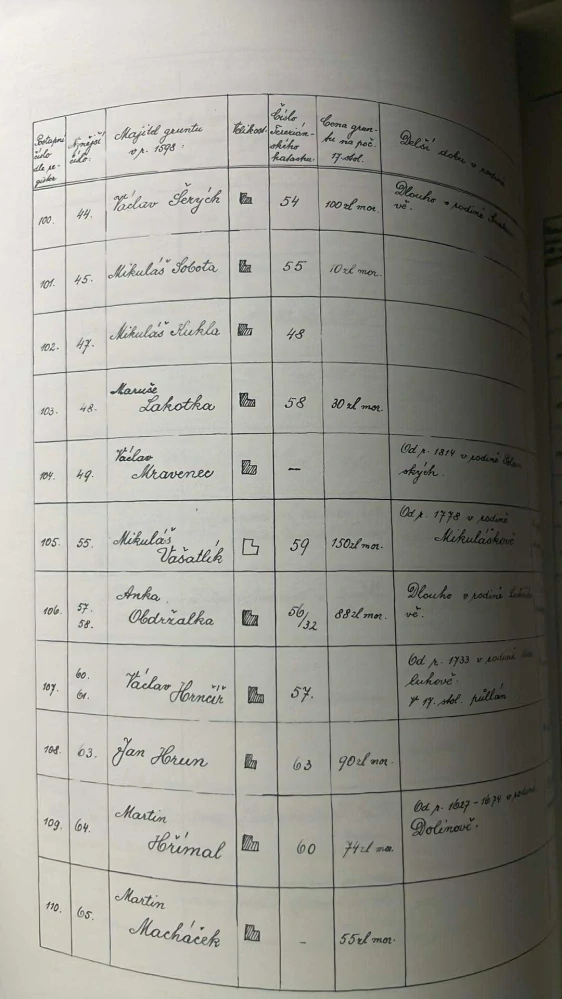 Postupné číslo dle re-
gister
Nynější číslo.
Majitel gruntu
v r. 1598.
Velikost
Číslo
Terezián-
ského
katastru
Cena grun-
tu na poč.
17. stol.
Delší dobu v rodině
100. 44. Václav Šerých 54 100 zl mor. Dlouho v rodině
vě.
101. 45. Mikuláš Sobota 55 10 zl mor.
102. 47. Mikuláš Kukla 48
103. 48. Maruše
Lakotka 58 30 zl mor.
104. 49. Václav
Mravenec — Od r. 1814 v rodině
ských.
105. 55. Mikuláš
Vašatlík 59 150 zl mor. Od r. 1778 v rodině
Mikuláškově
106. 57.
58. Anka
Obdržalka 56/32 88 zl mor. Dlouho v rodině
vě.
107. 60.
61. Václav
Hrnčíř 57. Od r. 1733 v rodině
lukově.
V 17. stol. půllán
108. 63. Jan Hrun 63 90 zl mor.
109. 64. Martin
Hřímal 60 74 zl mor. Od r. 1627-1674 v rodině
Dolínově.
110. 65. Martin
Macháček - 55 zl mor.